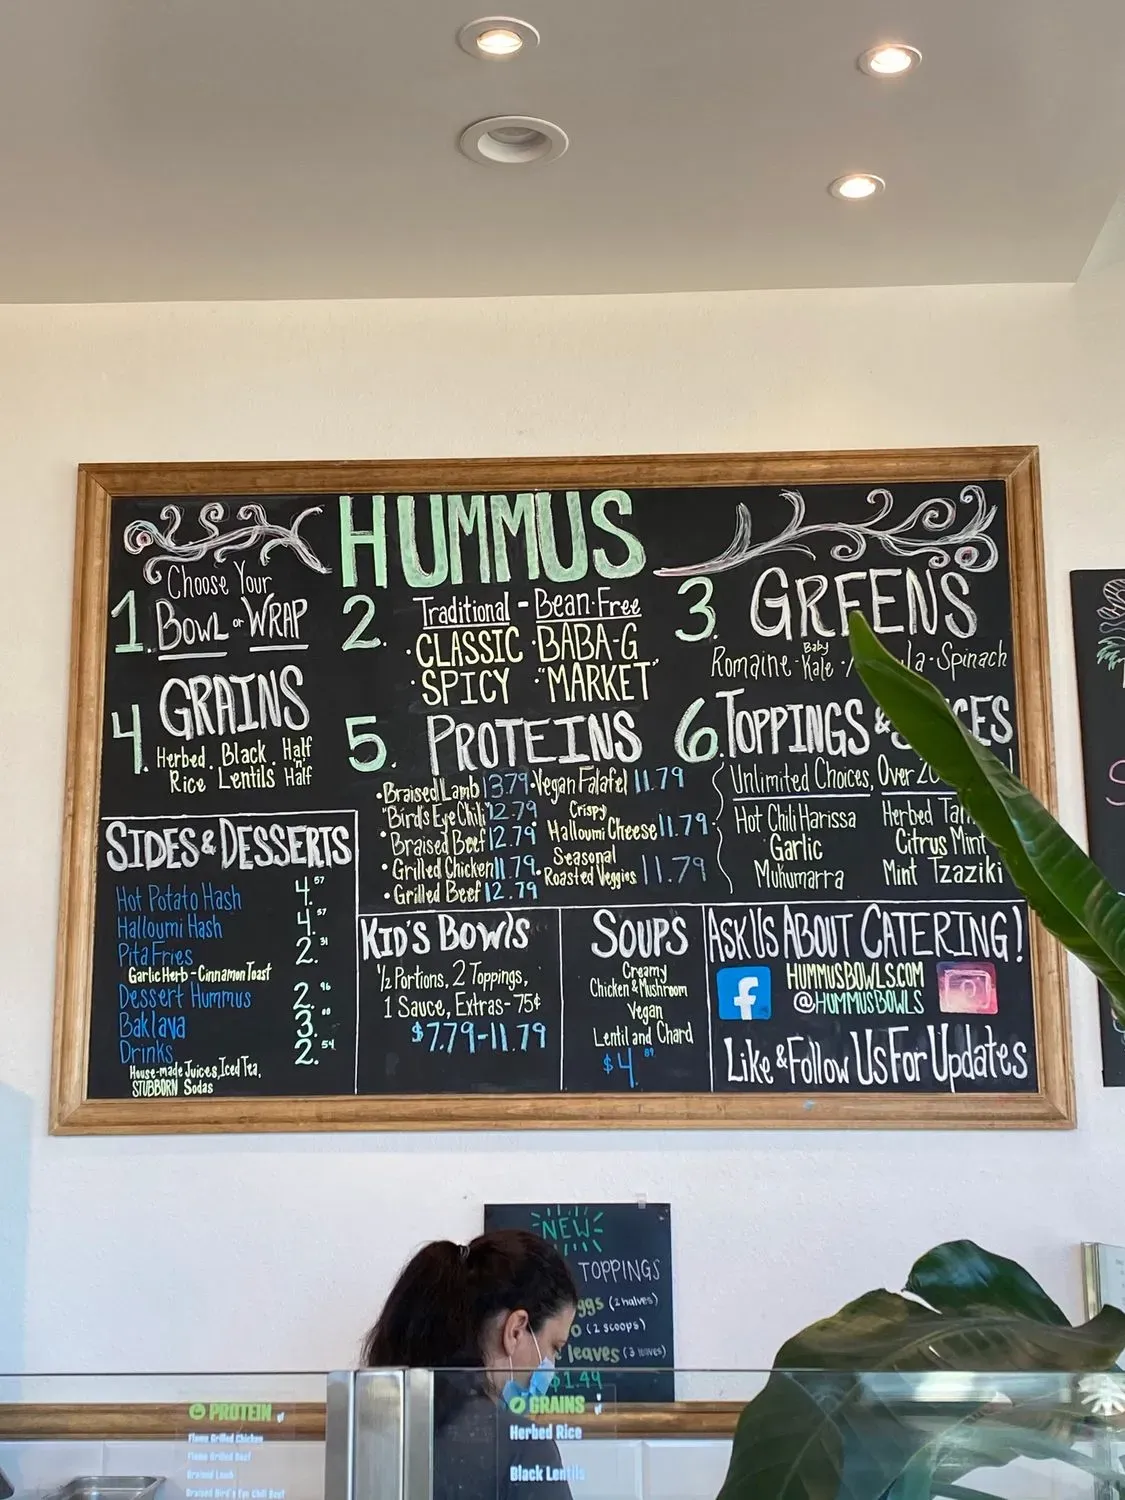 HUMMUS
1. Choose Your
BOWL or WRAP
2. Traditional - Bean-Free
• CLASSIC • BABA-G
• SPICY • "MARKET"
3. GREENS
Romaine - Baby Kale - Spinach
4. GRAINS
Herbed Rice • Black Lentils • Half 'n' Half
5. PROTEINS
• Braised Lamb 13.79
"Bird's Eye Chili" 12.79
• Braised Beef 12.79
• Grilled Chicken 11.79
• Grilled Beef 12.79
• Vegan Falafel 11.79
• Crispy Halloumi Cheese 11.79
• Seasonal Roasted Veggies 11.79
6. TOPPINGS &
Unlimited Choices, Over
Hot Chili Harissa
Garlic
Muhumarra
Herbed
Citrus Mint
Mint Tzaziki
SIDES & DESSERTS
Hot Potato Hash 4.57
Halloumi Hash 4.57
Pita Fries 2.31
Garlic Herb - Cinnamon Toast
Dessert Hummus 2.96
Baklava 3.00
Drinks 2.54
House-made Juices, Iced Tea,
STUBBORN Sodas
KID'S BOWLS
½ Portions, 2 Toppings,
1 Sauce, Extras - 75¢
$7.79-11.79
SOUPS
Creamy
Chicken & Mushroom
Vegan
Lentil and Chard
$4.89
ASK US ABOUT CATERING!
f
HUMMUSBOWLS.COM
@HUMMUSBOWLS
Like & Follow Us For Updates
NEW
TOPPINGS
(2 halves)
(2 scoops)
leaves (3 leaves)
$1.49
PROTEIN
Flame Grilled Chicken
Flame Grilled Beef
Braised Lamb
Braised Bird's Eye Chili Beef
GRAINS
Herbed Rice
Black Lentils